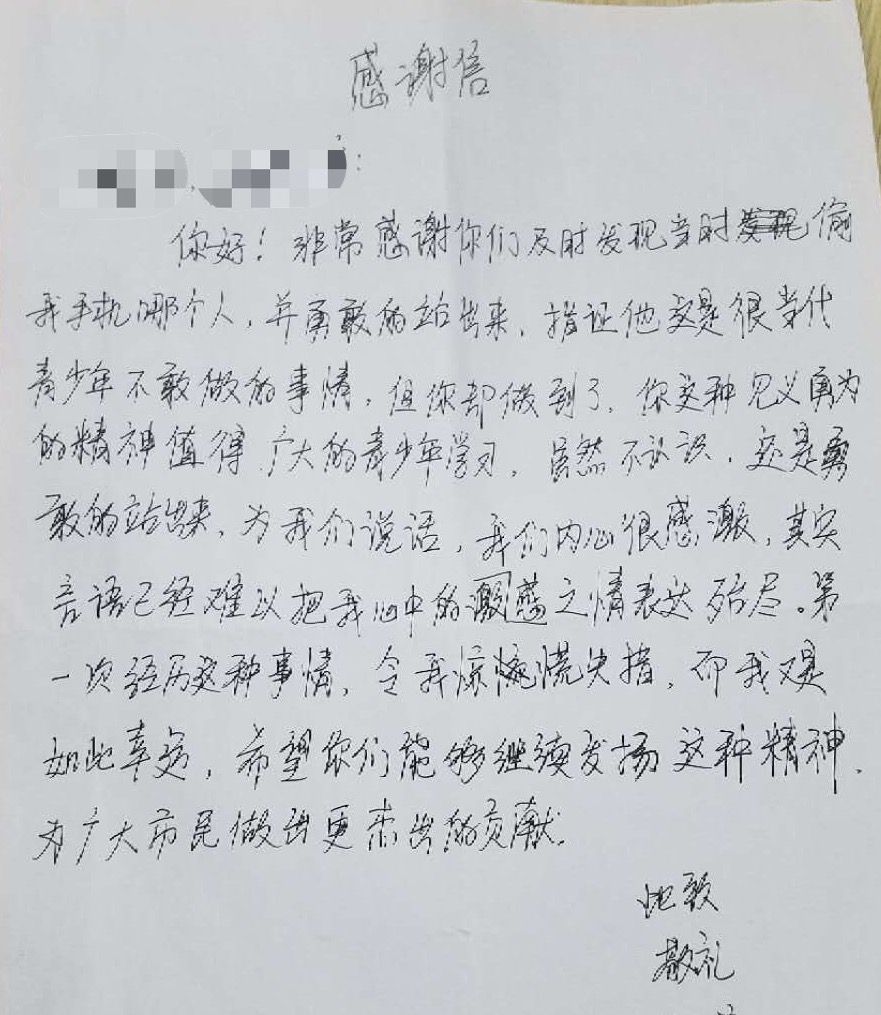 感谢信
:
你好！非常感谢你们及时发现当时偷
我手机哪个人，并勇敢的站出来，指证他这是很当代
青少年不敢做的事情，但你却做到了，你这种见义勇为
的精神值得广大的青少年学习，虽然不认识，还是勇
敢的站出来，为我们说话，我们内心很感激，其实
言语已经难以把我心中的激感之情表达殆尽。第
一次经历这种事情，令我惊慌失措，而我又是
如此幸运，希望你们能够继续发扬这种精神，
为广大市民做出更杰出的贡献。
此致
敬礼